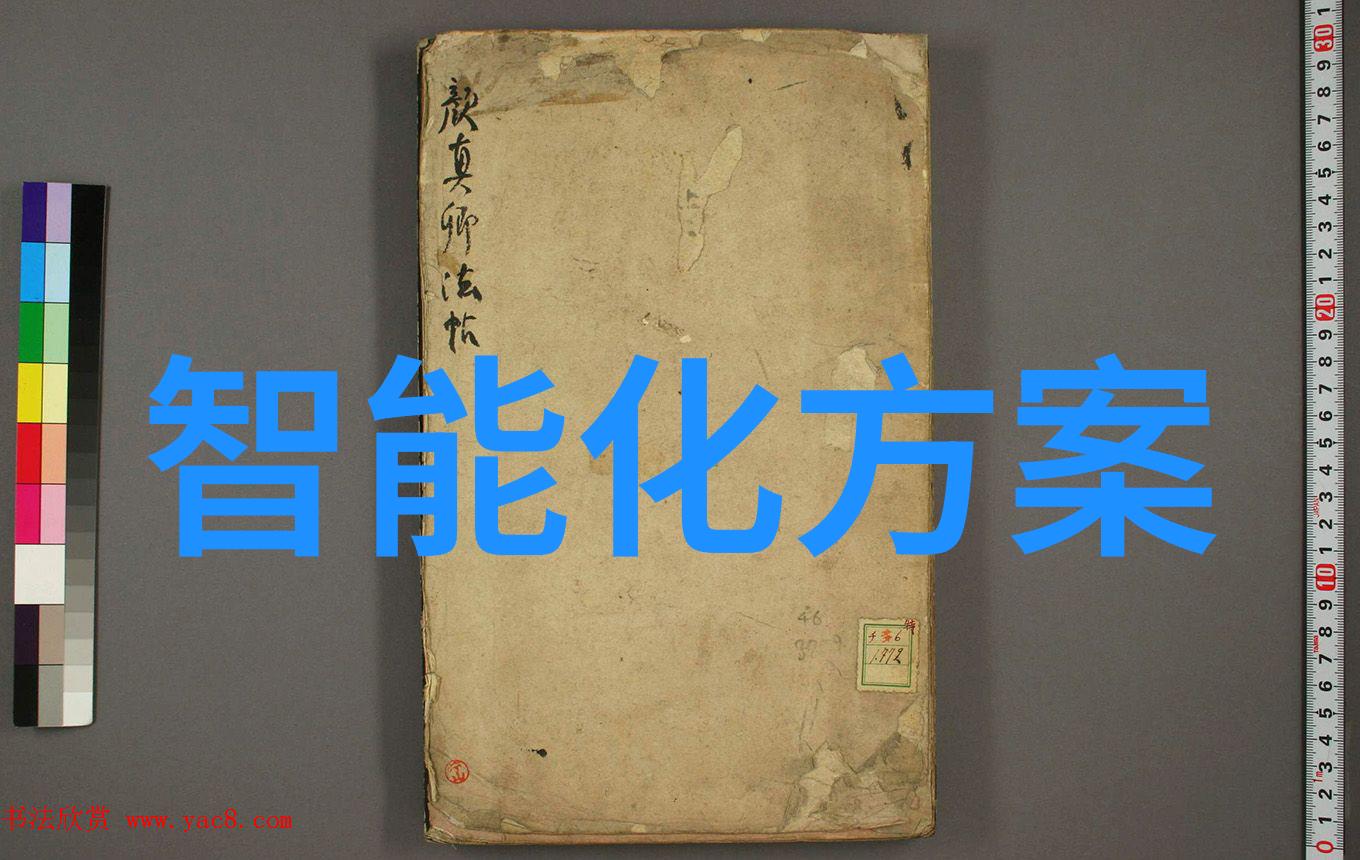 顔真卿法帖
智能化方案
特
チ 6
1772
46
江
书法欣赏 www.yac8.com
1
30
9
8
7
6
5
4
3
2
1
20
9
8
7
6
5
4
3
2
1
10
9
8
7
6
5
4
3
2
1
0